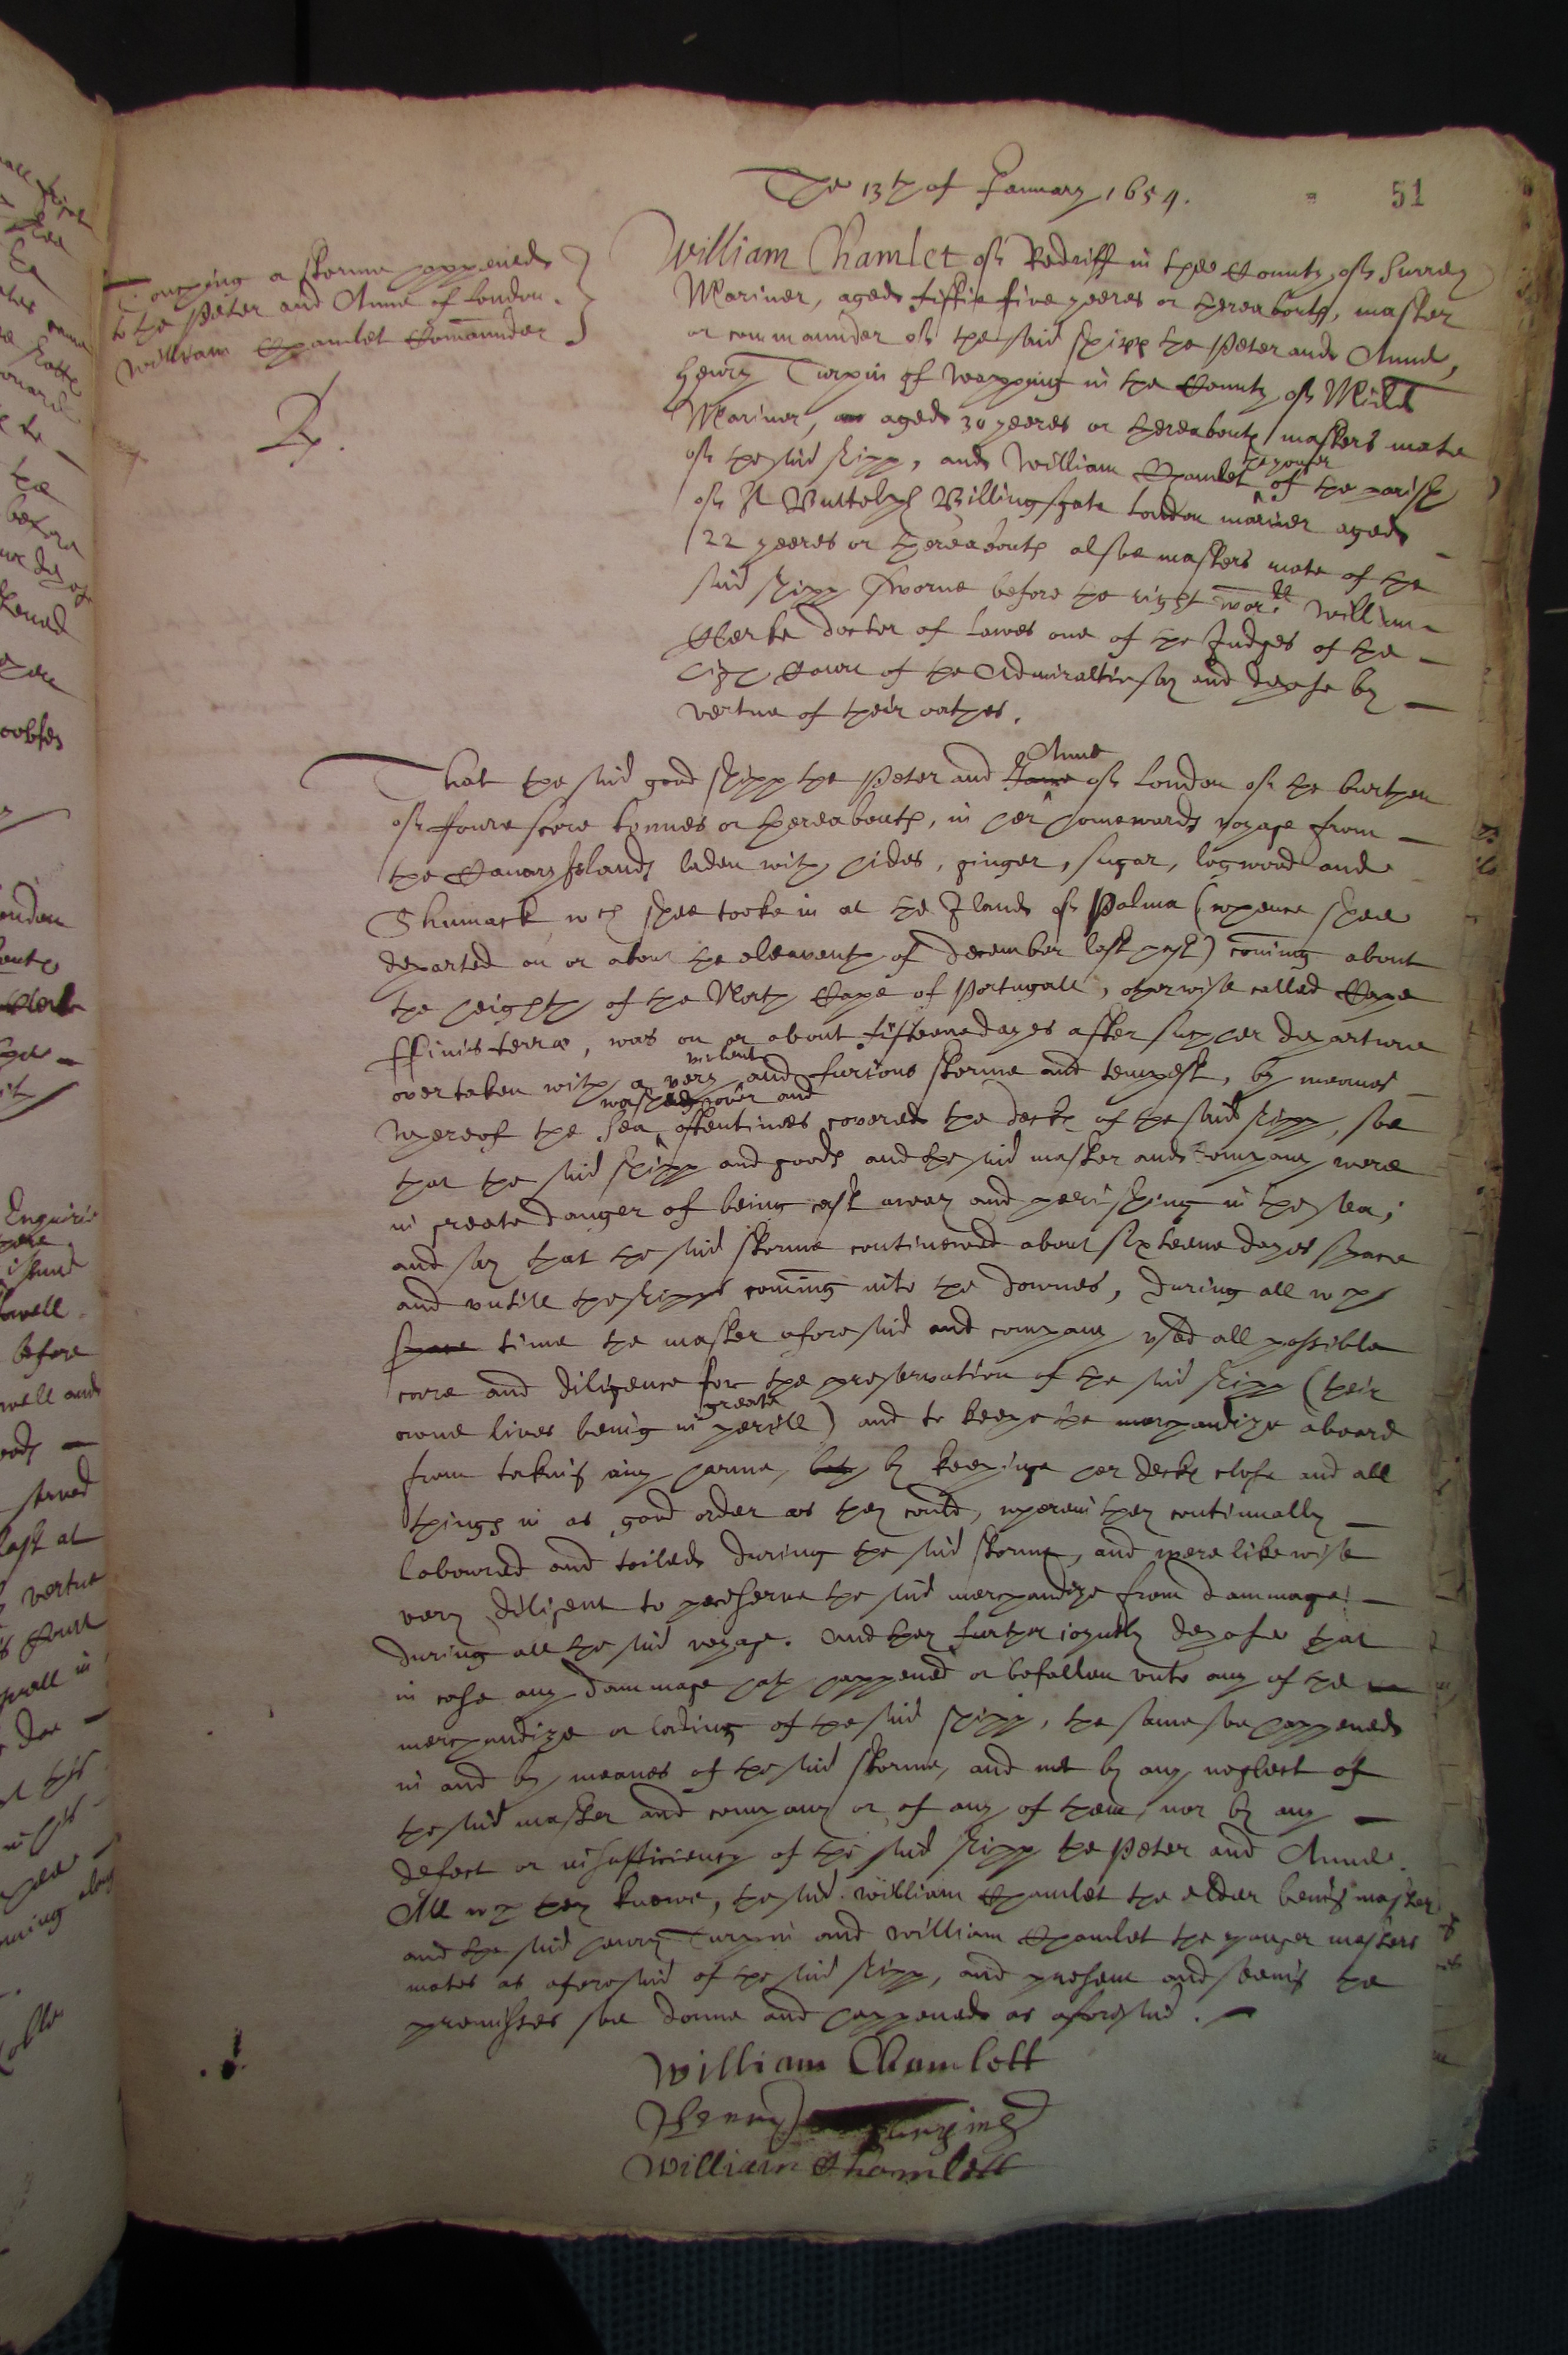 The 13th of January 1654.
51
Touching a storme happened
to the Peter and Anne of London.
William Chamlet Comaunder
William Chamlet of Redriff in the County of Surrey
Mariner, aged fiftie five yeeres or thereabouts, master
or commaunder of the said shipp the Peter and Anne,
Henry Turpin of Wapping in the County of Midds
Mariner, aged 30 yeeres or thereabouts masters mate
of the said shipp, and William Chamlet the yonger of the parish
of St Buttolph Billingsgate London mariner aged
22 yeeres or thereabouts alsoe masters mate of the
said shipp sworne before the right worll William
Clerke doctor of lawes one of the Judges of the
high Court of the Admiraltie say and depose by
vertue of their oathes.
That the said good shipp the Peter and Jane Anne of London of the burthen
of foure score tonnes or thereabouts, in her homewards voyage from
the Canary Islands laden with hides, ginger, sugar, logwood and
Shumack wch shee tooke in at the Iland of Palma (whence shee
departed on or about the eleaventh of December last past) coming about
the heighth of the North Cape of Portugall, otherwise called Cape
ffinis terræ, was on or about fifteene dayes after such her departure
overtaken with a very violent and furious storme and tempest, by meanes
whereof the sea washed over and oftentimes covered the decks of the said shipp, soe
that the said shipp and goods and the said master and company were
in greate danger of being cast away and perishing in the sea;
and say that the said storme continewed about sixteene dayes space
and untill the shipps coming into the Downes, during all wch
space time the master aforesaid and company used all possible
care and diligence for the preservation of the said shipp (their
owne lives being in greate perill) and to keepe the merchandize aboard
from taking any harme, by keepinge her decks close and all
things in as good order as they could, wherein they continually
laboured and toiled during the said storme, and were likewise
very diligent to preserve the said merchandize from dammage
during all the said voyage. And they further joyntly depose that
in case any dammage hath happened or befallen unto any of the
merchandize or lading of the said shipp, the same soe happened
in and by meanes of the said storme, and not by any neglect of
the said master and company or of any of them, nor by any
defect or insufficiency of the said shipp the Peter and Anne.
All wch they knowe, the said William Chamlet the elder being master
and the said Henry Turpin and William Chamlet the yonger masters
mates as aforesaid of the said shipp, and present and seeing the
premisses soe donne and happened as aforesaid.
William Chamlett
Henry Turpine
William Chamlett